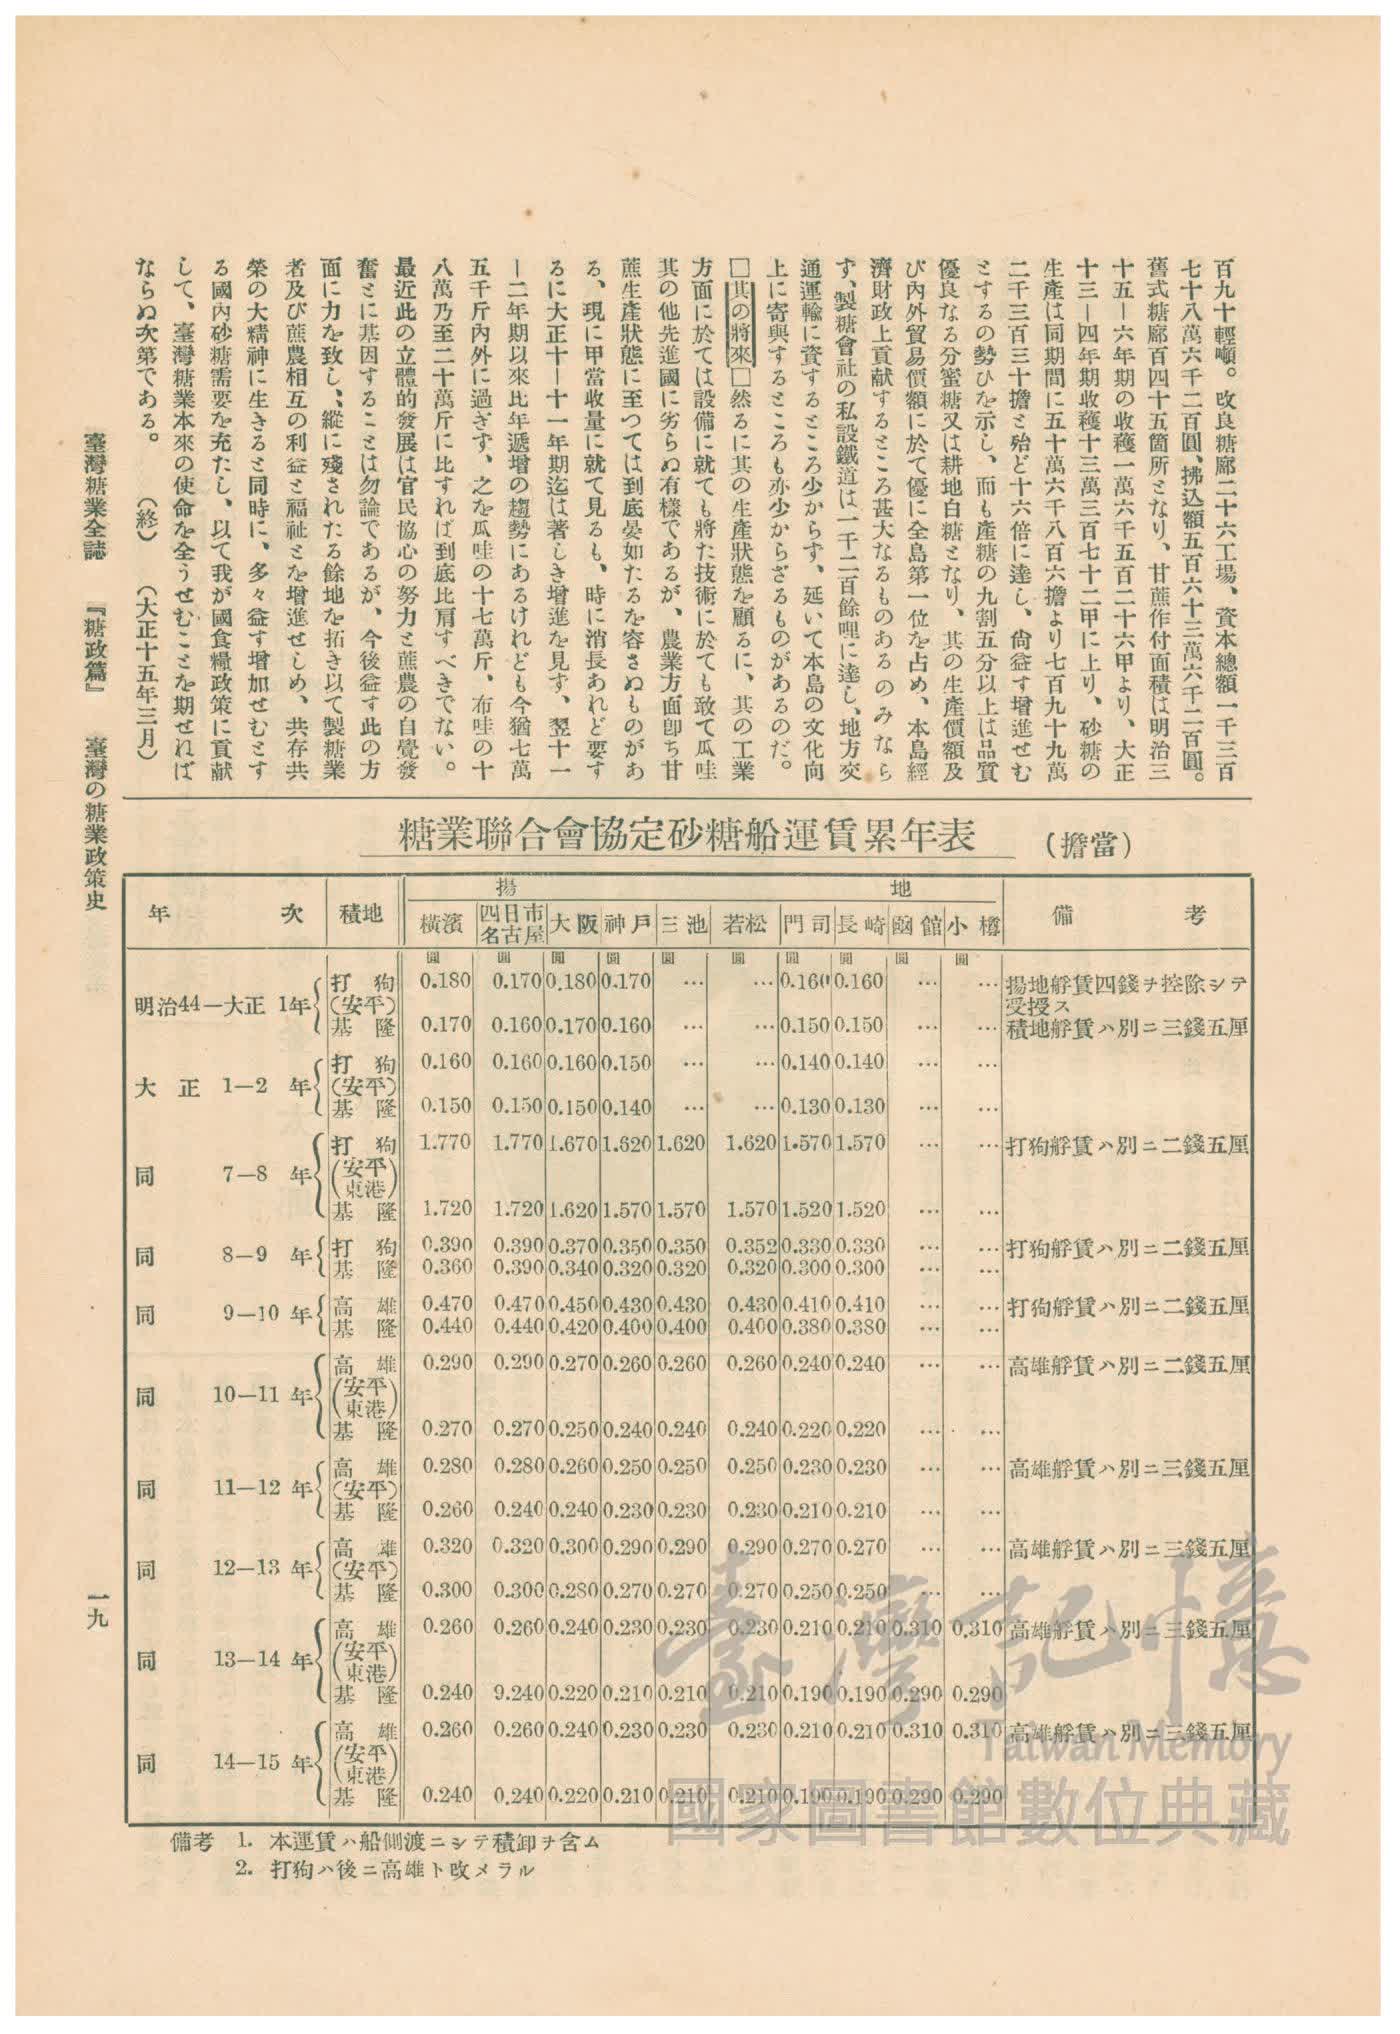 百九十輕噸。改良糖廍二十六工場、資本總額一千三百
七十八萬六千二百圓、拂込額五百六十三萬六千二百圓。
舊式糖廍百四十五箇所となり、甘蔗作付面積は明治三
十五—六年期の收穫一萬六千五百二十六甲より、大正
十三—四年期收穫十三萬三百七十二甲に上り、砂糖の
生產は同期間に五十萬六千八百六擔より七百九十九萬
二千三百三十擔と殆ど十六倍に達し、尙益す增進せむ
とするの勢ひを示し、而も產糖の九割五分以上は品質
優良なる分蜜糖又は耕地白糖となり、其の生產價額及
び內外貿易價額に於て優に全島第一位を占め、本島經
濟財政上貢献するところ甚大なるものあるのみなら
ず、製糖會社の私設鐵道は一千二百餘哩に達し、地方交
通運輸に資するところ少からず、延いて本島の文化向
上に寄與するところも亦少からざるものがあるのだ。
□其の將來□然るに其の生產狀態を顧るに、其の工業
方面に於ては設備に就ても將た技術に於ても敢て瓜哇
其の他先進國に劣らぬ有樣であるが、農業方面卽ち甘
蔗生產狀態に至つては到底晏如たるを容さぬものがあ
る、現に甲當收量に就て見るも、時に消長あれど要す
るに大正十—十一年期迄は著しき增進を見す、翌十一
—二年期以來比年遞增の趨勢にあるけれども今猶七萬
五千斤內外に過ぎず、之を瓜哇の十七萬斤、布哇の十
八萬乃至二十萬斤に比すれば到底比肩すべきでない。
最近此の立體的發展は官民協心の努力と蔗農の自覺發
奮とに基因することは勿論であるが、今後益す此の方
面に力を致し、縱に殘されたる餘地を拓き以て製糖業
者及び蔗農相互の利益と福祉とを增進せしめ、共存共
榮の大精神に生きると同時に、多々益す增加せむとす
る國內砂糖需要を充たし、以て我が國食糧政策に貢献
して、臺灣糖業本來の使命を全うせむことを期せれば
ならぬ次第である。 (終) (大正十五年三月)
臺灣糖業全誌 『糖政篇』 臺灣の糖業政策史
一九
糖業聯合會協定砂糖船運賃累年表 (擔當)
年 次 積地 揚 地 備 考
橫濱 四日市名古屋 大阪 神戶 三池 若松 門司 長崎 凾館 小樽
圓 圓 圓 圓 圓 圓 圓 圓 圓 圓
明治44—大正 1年 打狗 0.180 0.170 0.180 0.170 … … 0.160 0.160 … … 揚地艀賃四錢ヲ控除シテ
(安平) 受授ス
基隆 0.170 0.160 0.170 0.160 … … 0.150 0.150 … … 積地艀賃ハ別ニ三錢五厘
大正 1—2 年 打狗 0.160 0.160 0.160 0.150 … … 0.140 0.140 … …
(安平)
基隆 0.150 0.150 0.150 0.140 … … 0.130 0.130 … …
同 7—8 年 打狗 1.770 1.770 1.670 1.620 1.620 1.620 1.570 1.570 … … 打狗艀賃ハ別ニ二錢五厘
(安平
東港)
基隆 1.720 1.720 1.620 1.570 1.570 1.570 1.520 1.520 … …
同 8—9 年 打狗 0.390 0.390 0.370 0.350 0.350 0.352 0.330 0.330 … … 打狗艀賃ハ別ニ二錢五厘
基隆 0.360 0.390 0.340 0.320 0.320 0.320 0.300 0.300 … …
同 9—10 年 高雄 0.470 0.470 0.450 0.430 0.430 0.430 0.410 0.410 … … 打狗艀賃ハ別ニ二錢五厘
基隆 0.440 0.440 0.420 0.400 0.400 0.400 0.380 0.380 … …
同 10—11 年 高雄 0.290 0.290 0.270 0.260 0.260 0.260 0.240 0.240 … … 高雄艀賃ハ別ニ二錢五厘
(安平
東港)
基隆 0.270 0.270 0.250 0.240 0.240 0.240 0.220 0.220 … …
同 11—12 年 高雄 0.280 0.280 0.260 0.250 0.250 0.250 0.230 0.230 … … 高雄艀賃ハ別ニ三錢五厘
(安平)
基隆 0.260 0.240 0.240 0.230 0.230 0.230 0.210 0.210 … …
同 12—13 年 高雄 0.320 0.320 0.300 0.290 0.290 0.290 0.270 0.270 … … 高雄艀賃ハ別ニ三錢五厘
(安平)
基隆 0.300 0.300 0.280 0.270 0.270 0.270 0.250 0.250 … …
同 13—14 年 高雄 0.260 0.260 0.240 0.230 0.230 0.230 0.210 0.210 0.310 0.310 高雄艀賃ハ別ニ三錢五厘
(安平
東港)
基隆 0.240 9.240 0.220 0.210 0.210 0.210 0.190 0.190 0.290 0.290
同 14—15 年 高雄 0.260 0.260 0.240 0.230 0.230 0.230 0.210 0.210 0.310 0.310 高雄艀賃ハ別ニ三錢五厘
(安平
東港)
基隆 0.240 0.240 0.220 0.210 0.210 0.210 0.190 0.190 0.290 0.290
備考 1. 本運賃ハ船側渡ニシテ積卸ヲ含ム
2. 打狗ハ後ニ高雄ト改メラル
臺灣記憶
Taiwan Memory
國家圖書館數位典藏